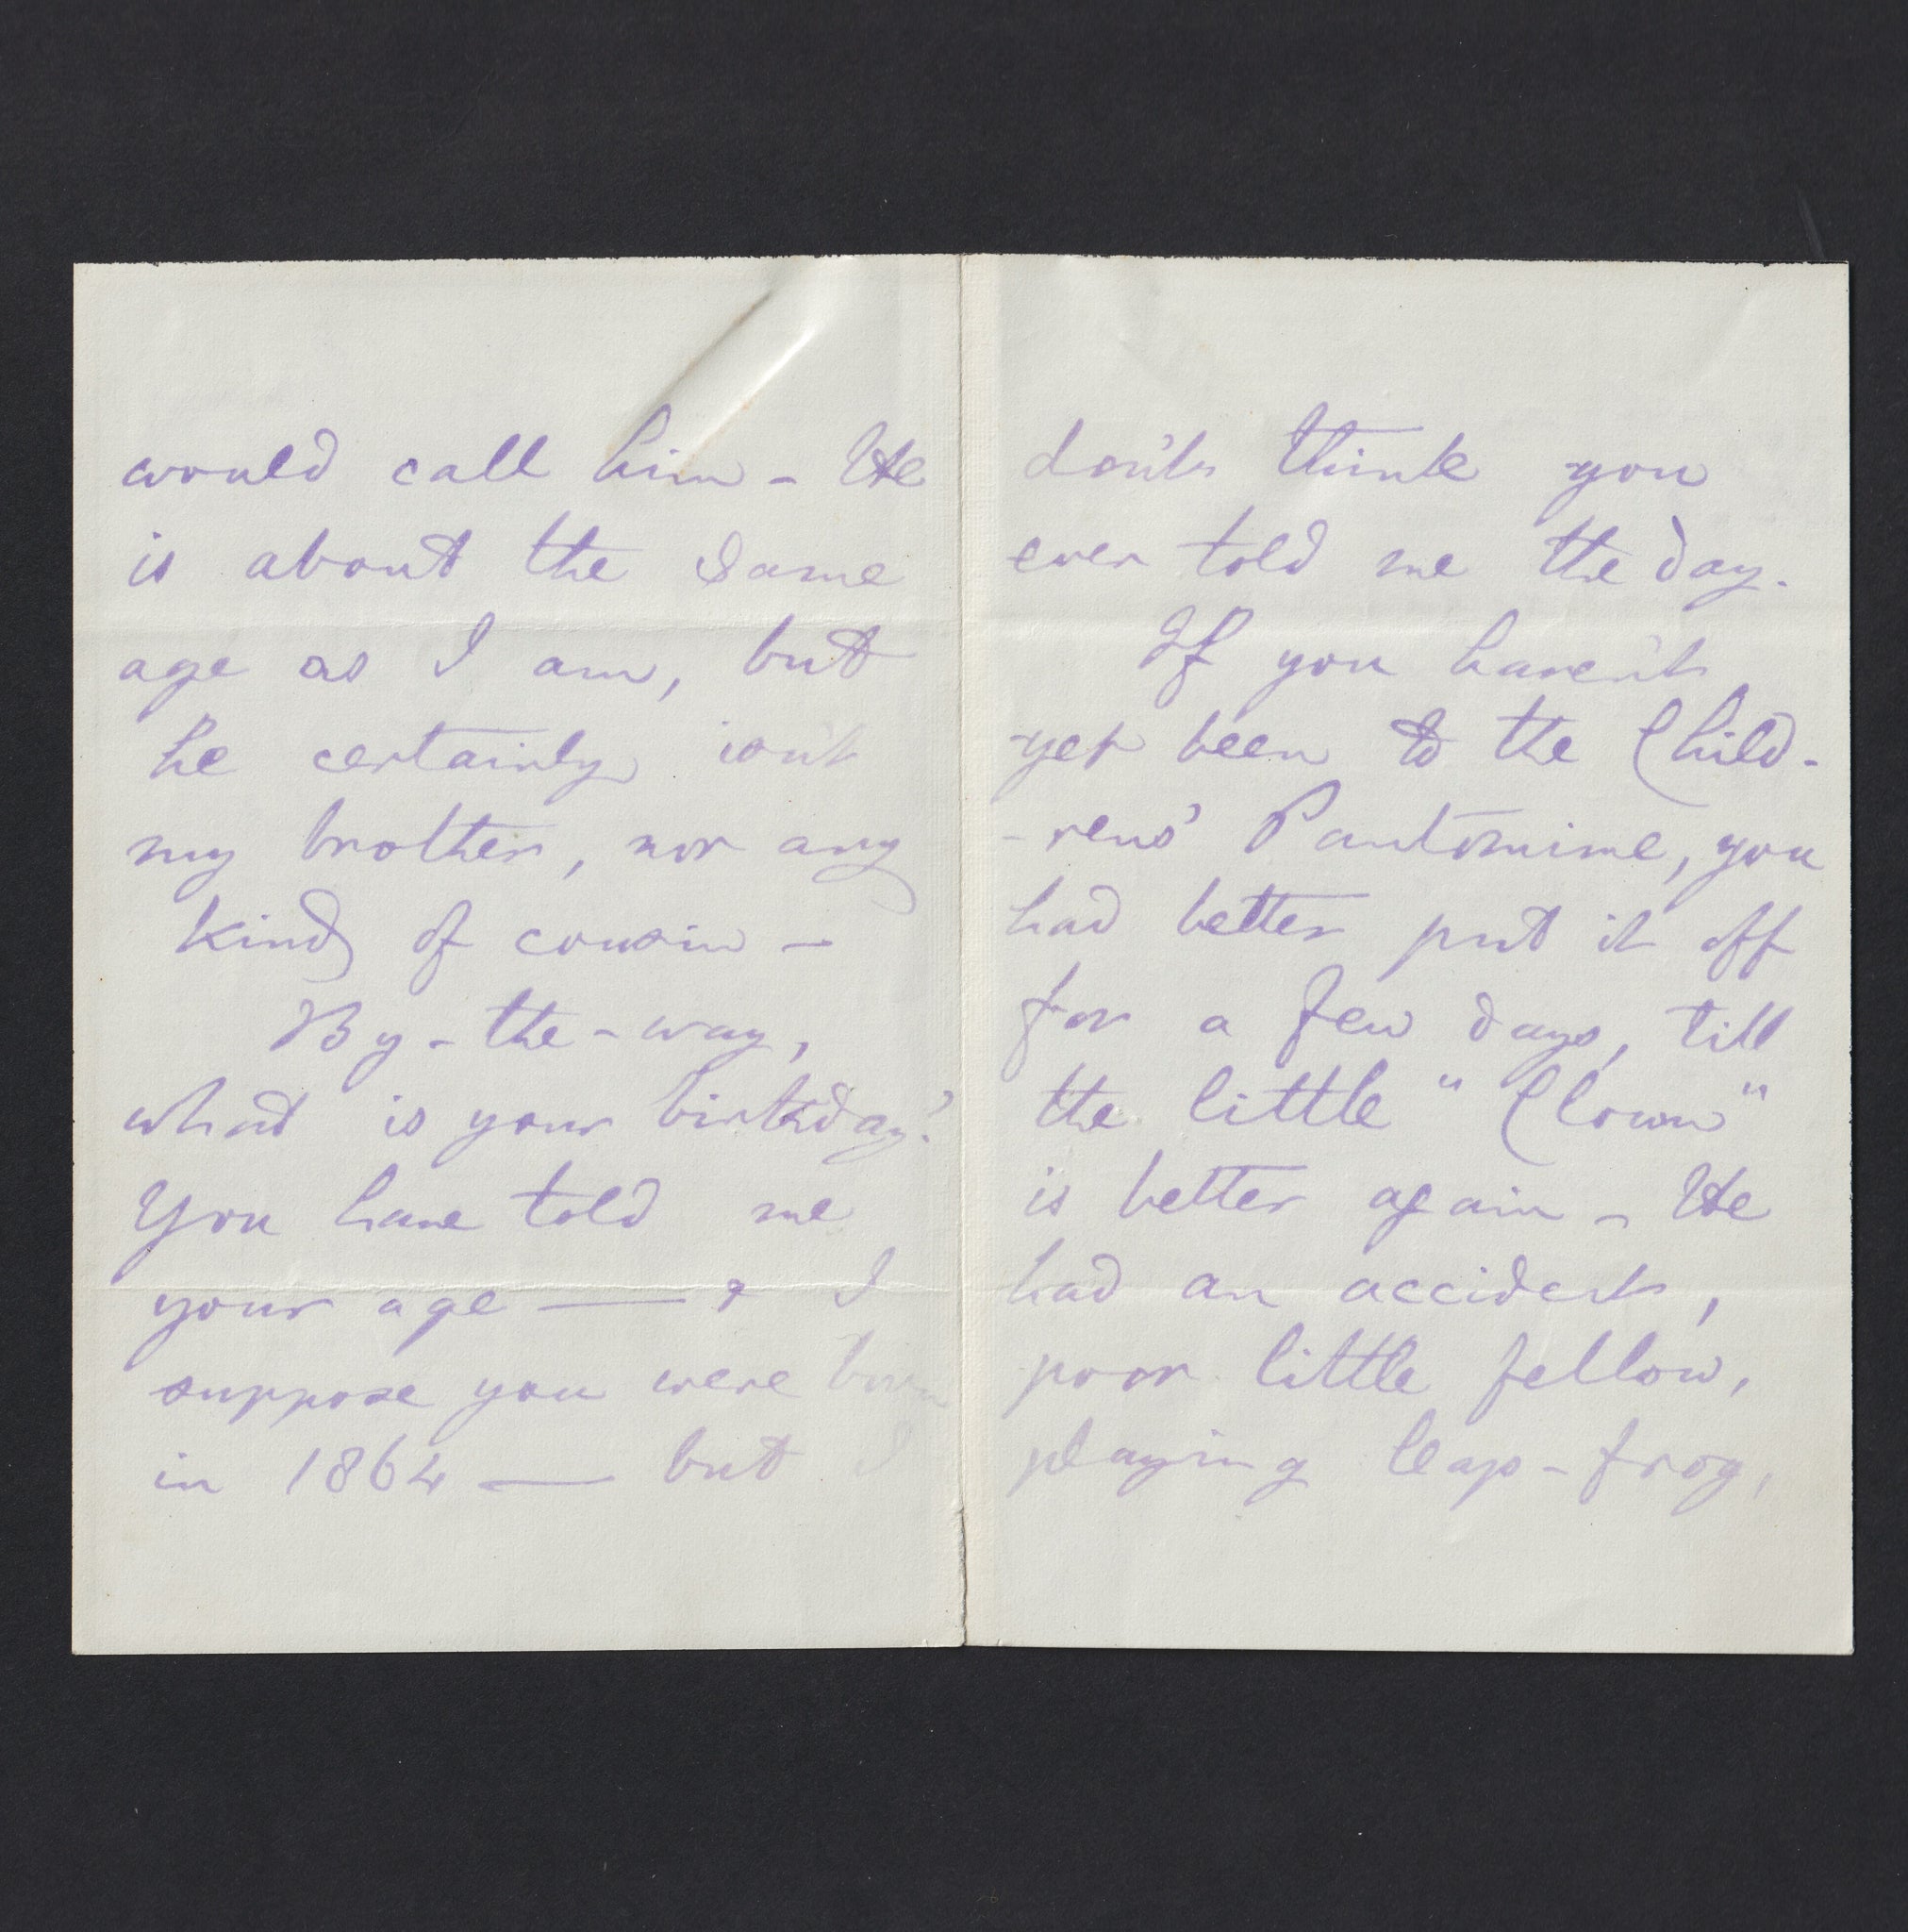 would call him - He
is about the same
age as I am, but
he certainly isn't
my brother, nor any
kind of cousin -
By-the-way,
what is your birthday?
You have told me
your age — & I
suppose you were born
in 1864 — but I
don't think you
ever told me the day.
If you haven't
yet been to the Child-
-rens' Pantomime, you
had better put it off
for a few days, till
the little "Clown"
is better again - He
had an accident,
poor little fellow,
playing leap-frog,